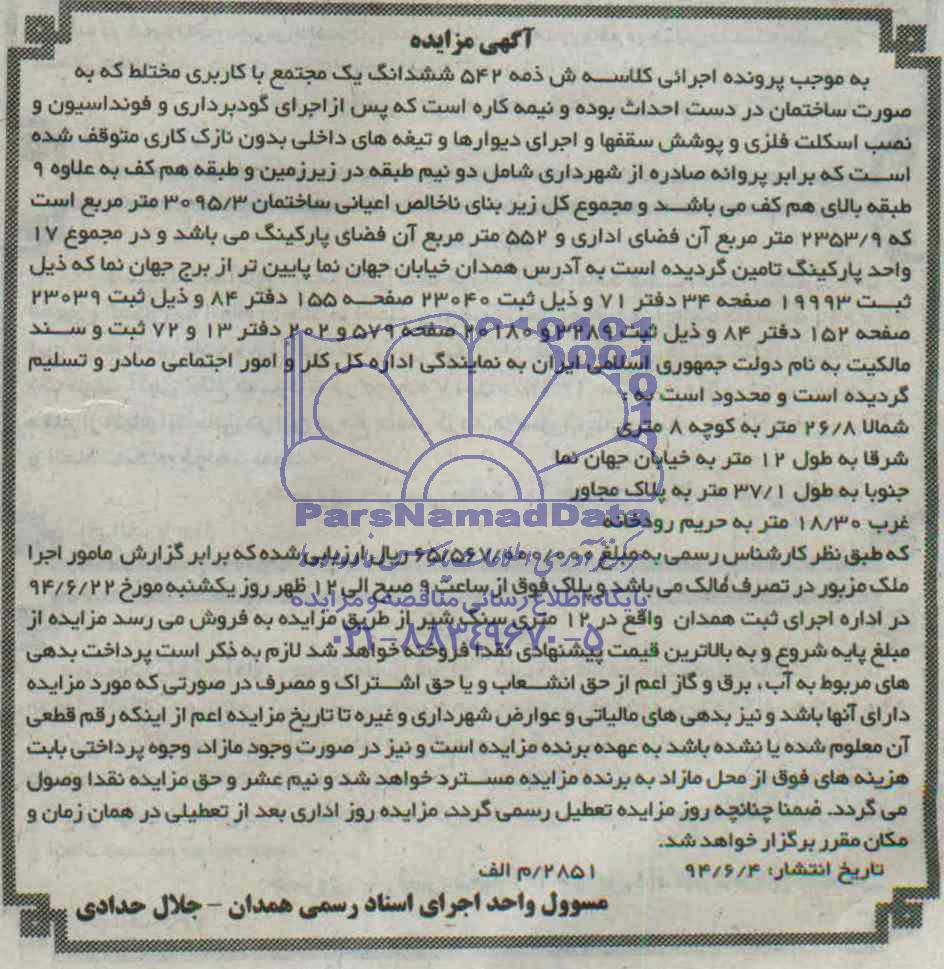 آگهی مزایده
به موجب پرونده اجرائی کلاسه ش ذمه ۵۴۲ ششدانگ یک مجتمع با کاربری مختلط که به
صورت ساختمان در دست احداث بوده و نیمه کاره است که پس ازاجرای گودبرداری و فونداسیون و
نصب اسکلت فلزی و پوشش سقفها و اجرای دیوارها و تیغه های داخلی بدون نازک کاری متوقف شده
است که برابر پروانه صادره از شهرداری شامل دو نیم طبقه در زیرزمین و طبقه هم کف به علاوه ۹
طبقه بالای هم کف می باشد و مجموع کل زیر بنای ناخالص اعیانی ساختمان ۳۰۹۵/۳ متر مربع است
که ۲۳۵۳/۹ متر مربع آن فضای اداری و ۵۵۲ متر مربع آن فضای پارکینگ می باشد و در مجموع ۱۷
واحد پارکینگ تامین گردیده است به آدرس همدان خیابان جهان نما پایین تر از برج جهان نما که ذیل
ثبت ۱۹۹۹۳ صفحه ۳۴ دفتر ۷۱ و ذیل ثبت ۲۳۰۴۰ صفحه ۱۵۵ دفتر ۸۴ و ذیل ثبت ۲۳۰۳۹
صفحه ۱۵۲ دفتر ۸۴ و ذیل ثبت ۳۲۸۹ و ۲۰۱۸۰ صفحه ۵۷۹ و ۲۰۲ دفتر ۱۳ و ۷۲ ثبت و سند
مالکیت به نام دولت جمهوری اسلامی ایران به نمایندگی اداره کل کلر و امور اجتماعی صادر و تسلیم
گردیده است و محدود است به :
شمالا ۲۶/۸ متر به کوچه ۸ متری
شرقا به طول ۱۲ متر به خیابان جهان نما
جنوبا به طول ۳۷/۱ متر به پلاک مجاور
غرب ۱۸/۳۰ متر به حریم رودخانه
ParsNamadData
که طبق نظر کارشناس رسمی به مبلغ ریال ارزیابی شده که برابر گزارش مامور اجرا
ملک مزبور در تصرف مالک می باشد و پلاک فوق از ساعت ۹ صبح الی ۱۲ ظهر روز یکشنبه مورخ ۹۴/۶/۲۲
پایگاه اطلاع رسانی مناقصه و مزایده
در اداره اجرای ثبت همدان واقع در ۱۲ متری سنگ شیر از طریق مزایده به فروش می رسد مزایده از
۰۲۱-۸۸۳۴۹۶۷۰-۵
مبلغ پایه شروع و به بالاترین قیمت پیشنهادی نقدا فروخته خواهد شد لازم به ذکر است پرداخت بدهی
های مربوط به آب، برق و گاز اعم از حق انشعاب و یا حق اشتراک و مصرف در صورتی که مورد مزایده
دارای آنها باشد و نیز بدهی های مالیاتی و عوارض شهرداری و غیره تا تاریخ مزایده اعم از اینکه رقم قطعی
آن معلوم شده یا نشده باشد به عهده برنده مزایده است و نیز در صورت وجود مازاد، وجوه پرداختی بابت
هزینه های فوق از محل مازاد به برنده مزایده مسترد خواهد شد و نیم عشر و حق مزایده نقدا وصول
می گردد. ضمنا چنانچه روز مزایده تعطیل رسمی گردد، مزایده روز اداری بعد از تعطیلی در همان زمان و
مکان مقرر برگزار خواهد شد.
تاریخ انتشار: ۹۴/۶/۴ ۲۸۵۱/م الف
مسوول واحد اجرای اسناد رسمی همدان - جلال حدادی